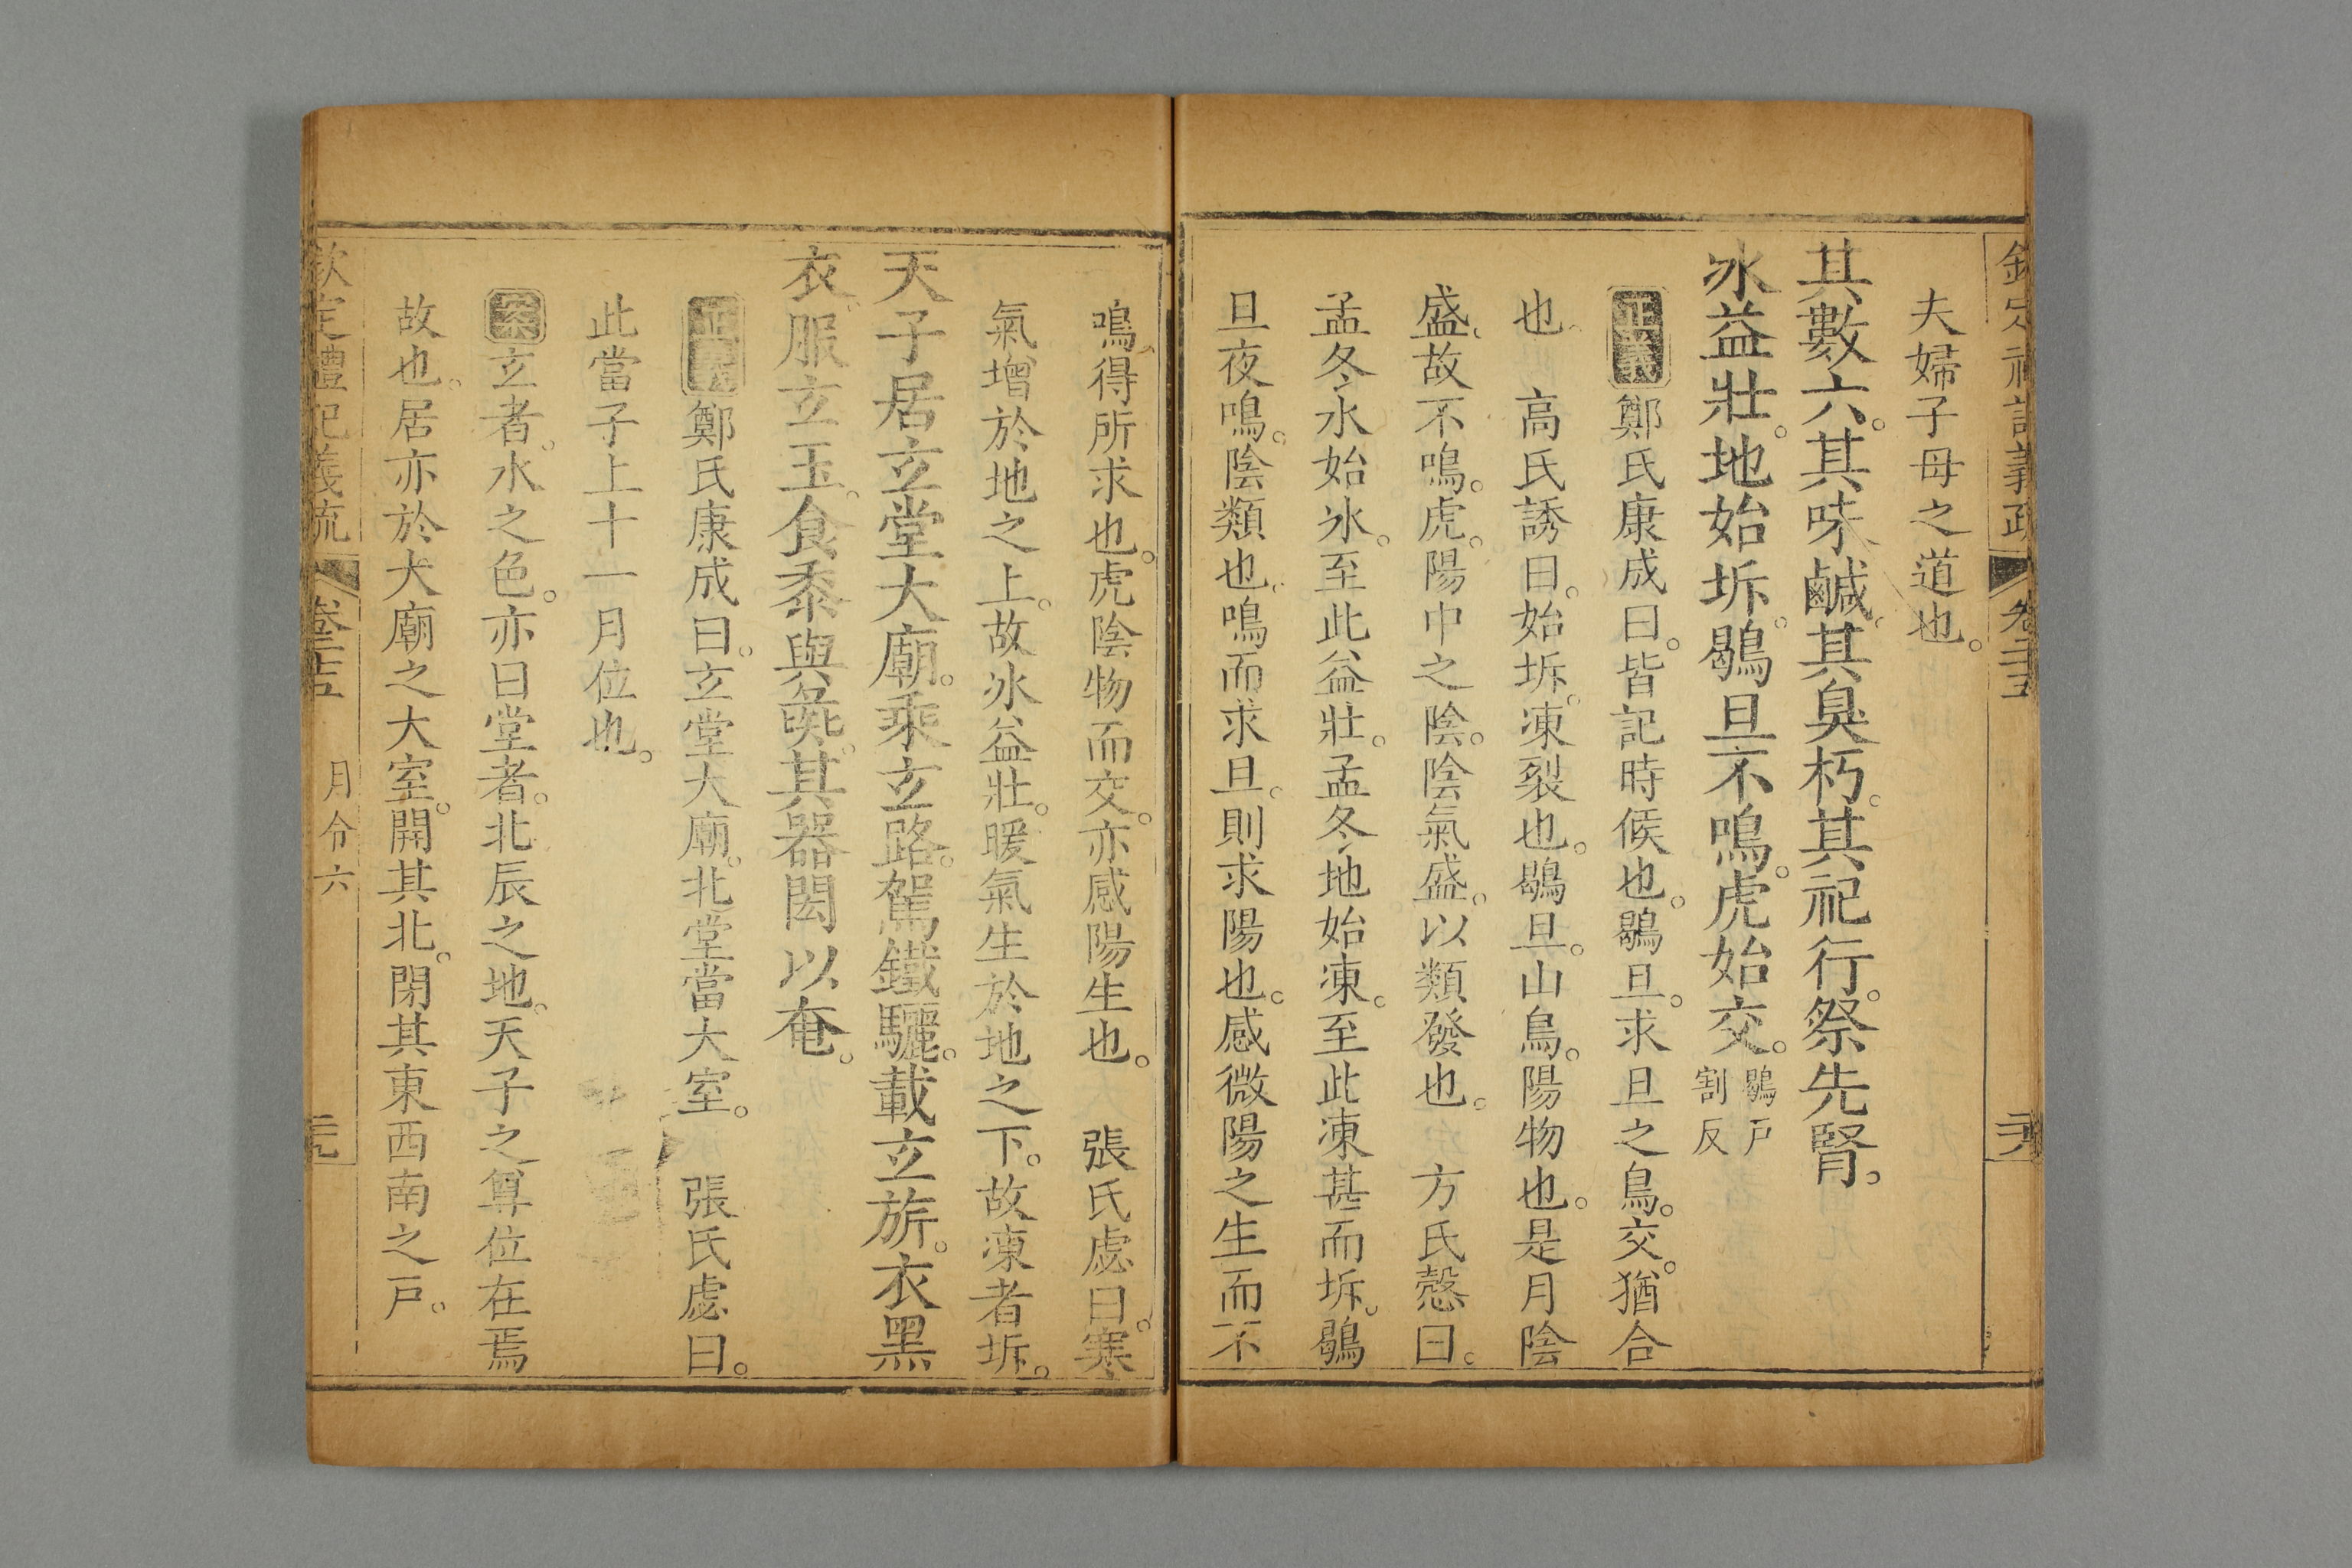 夫婦子母之道也。
其數六。其味鹹。其臭朽。其祀行。祭先腎。
冰益壯。地始坼。鶡旦不鳴。虎始交。鶡戸割反
正義鄭氏康成曰。皆記時候也。鶡旦。求旦之鳥。交。猶合
也 高氏誘曰。始坼。凍裂也。鶡旦。山鳥。陽物也。是月陰
盛。故不鳴。虎。陽中之陰。陰氣盛。以類發也。 方氏慤曰。
孟冬水始冰。至此益壯。孟冬地始凍。至此凍甚而坼。鶡
旦夜鳴。陰類也。鳴而求旦。則求陽也。感微陽之生而不
鳴。得所求也。虎陰物而交。亦感陽生也。 張氏虙曰。寒
氣增於地之上。故冰益壯。暖氣生於地之下。故凍者坼。
天子居玄堂大廟。乘玄路。駕鐵驪。載玄旂。衣黑
衣。服玄玉。食黍與彘。其器閎以奄。
正義鄭氏康成曰。玄堂大廟。北堂當大室。 張氏虙曰。
此當子上十一月位也。
案玄者。水之色。亦曰堂者。北辰之地。天子之尊位在焉
故也。居亦於大廟之大室。開其北。閉其東西南之戸。
欽定禮記義疏 卷 月令六